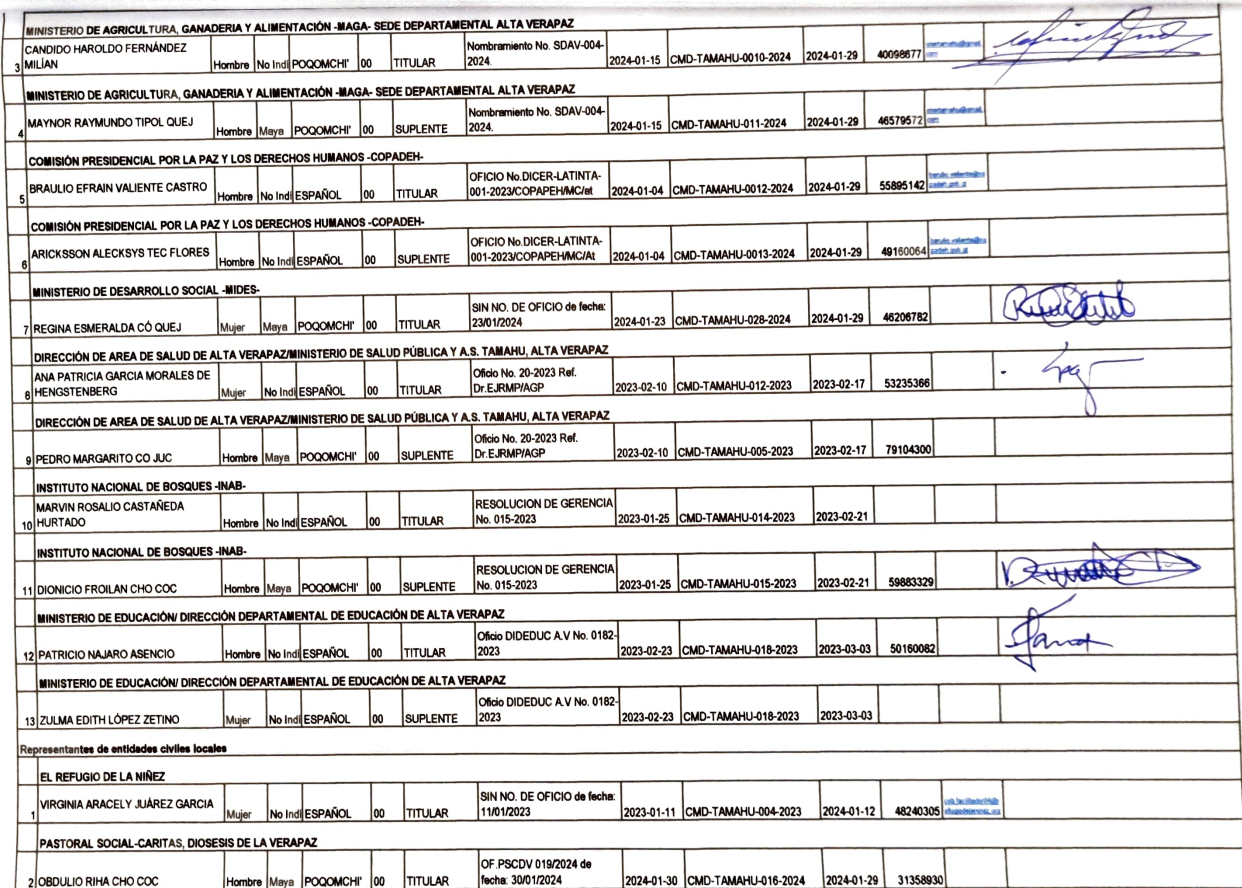 MINISTERIO DE AGRICULTURA, GANADERIA Y ALIMENTACIÓN -MAGA- SEDE DEPARTAMENTAL ALTA VERAPAZ
3 CANDIDO HAROLDO FERNÁNDEZ MILÍAN Hombre No Indi POQOMCHI' 00 TITULAR Nombramiento No. SDAV-004-2024. 2024-01-15 CMD-TAMAHU-0010-2024 2024-01-29 40098677
MINISTERIO DE AGRICULTURA, GANADERIA Y ALIMENTACIÓN -MAGA- SEDE DEPARTAMENTAL ALTA VERAPAZ
4 MAYNOR RAYMUNDO TIPOL QUEJ Hombre Maya POQOMCHI' 00 SUPLENTE Nombramiento No. SDAV-004-2024. 2024-01-15 CMD-TAMAHU-011-2024 2024-01-29 46579572
COMISIÓN PRESIDENCIAL POR LA PAZ Y LOS DERECHOS HUMANOS -COPADEH-
5 BRAULIO EFRAIN VALIENTE CASTRO Hombre No Indi ESPAÑOL 00 TITULAR OFICIO No.DICER-LATINTA-001-2023/COPAPEH/MC/at 2024-01-04 CMD-TAMAHU-0012-2024 2024-01-29 55895142
COMISIÓN PRESIDENCIAL POR LA PAZ Y LOS DERECHOS HUMANOS -COPADEH-
6 ARICKSSON ALECKSYS TEC FLORES Hombre No Indi ESPAÑOL 00 SUPLENTE OFICIO No.DICER-LATINTA-001-2023/COPAPEH/MC/At 2024-01-04 CMD-TAMAHU-0013-2024 2024-01-29 49160064
MINISTERIO DE DESARROLLO SOCIAL -MIDES-
7 REGINA ESMERALDA CÓ QUEJ Mujer Maya POQOMCHI' 00 TITULAR SIN NO. DE OFICIO de fecha: 23/01/2024 2024-01-23 CMD-TAMAHU-028-2024 2024-01-29 46206782
DIRECCIÓN DE AREA DE SALUD DE ALTA VERAPAZ/MINISTERIO DE SALUD PÚBLICA Y A.S. TAMAHU, ALTA VERAPAZ
8 ANA PATRICIA GARCIA MORALES DE HENGSTENBERG Mujer No Indi ESPAÑOL 00 TITULAR Oficio No. 20-2023 Ref. Dr.EJRMP/AGP 2023-02-10 CMD-TAMAHU-012-2023 2023-02-17 53235366
DIRECCIÓN DE AREA DE SALUD DE ALTA VERAPAZ/MINISTERIO DE SALUD PÚBLICA Y A.S. TAMAHU, ALTA VERAPAZ
9 PEDRO MARGARITO CO JUC Hombre Maya POQOMCHI' 00 SUPLENTE Oficio No. 20-2023 Ref. Dr.EJRMP/AGP 2023-02-10 CMD-TAMAHU-005-2023 2023-02-17 79104300
INSTITUTO NACIONAL DE BOSQUES -INAB-
10 MARVIN ROSALIO CASTAÑEDA HURTADO Hombre No Indi ESPAÑOL 00 TITULAR RESOLUCION DE GERENCIA No. 015-2023 2023-01-25 CMD-TAMAHU-014-2023 2023-02-21
INSTITUTO NACIONAL DE BOSQUES -INAB-
11 DIONICIO FROILAN CHO COC Hombre Maya POQOMCHI' 00 SUPLENTE RESOLUCION DE GERENCIA No. 015-2023 2023-01-25 CMD-TAMAHU-015-2023 2023-02-21 59883329
MINISTERIO DE EDUCACIÓN/ DIRECCIÓN DEPARTAMENTAL DE EDUCACIÓN DE ALTA VERAPAZ
12 PATRICIO NAJARO ASENCIO Hombre No Indi ESPAÑOL 00 TITULAR Oficio DIDEDUC A.V No. 0182-2023 2023-02-23 CMD-TAMAHU-018-2023 2023-03-03 50160082
MINISTERIO DE EDUCACIÓN/ DIRECCIÓN DEPARTAMENTAL DE EDUCACIÓN DE ALTA VERAPAZ
13 ZULMA EDITH LÓPEZ ZETINO Mujer No Indi ESPAÑOL 00 SUPLENTE Oficio DIDEDUC A.V No. 0182-2023 2023-02-23 CMD-TAMAHU-018-2023 2023-03-03
Representantes de entidades civiles locales
EL REFUGIO DE LA NIÑEZ
1 VIRGINIA ARACELY JUÁREZ GARCIA Mujer No Indi ESPAÑOL 00 TITULAR SIN NO. DE OFICIO de fecha: 11/01/2023 2023-01-11 CMD-TAMAHU-004-2023 2024-01-12 48240305
PASTORAL SOCIAL-CARITAS, DIOSESIS DE LA VERAPAZ
2 OBDULIO RIHA CHO COC Hombre Maya POQOMCHI' 00 TITULAR OF.PSCDV 019/2024 de fecha: 30/01/2024 2024-01-30 CMD-TAMAHU-016-2024 2024-01-29 31358930